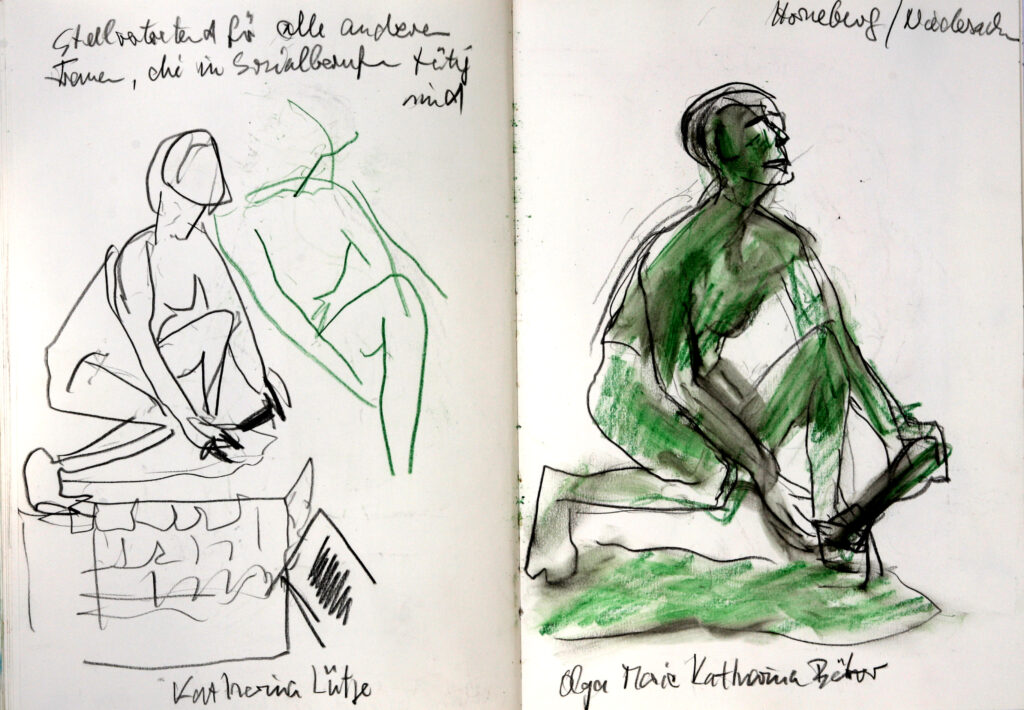 Stellvertretend für alle anderen
Frauen, die im Sozialberufen tätig
sind
Katharina Lütje
Horneburg / Niedersach
Olga Marie Katharina